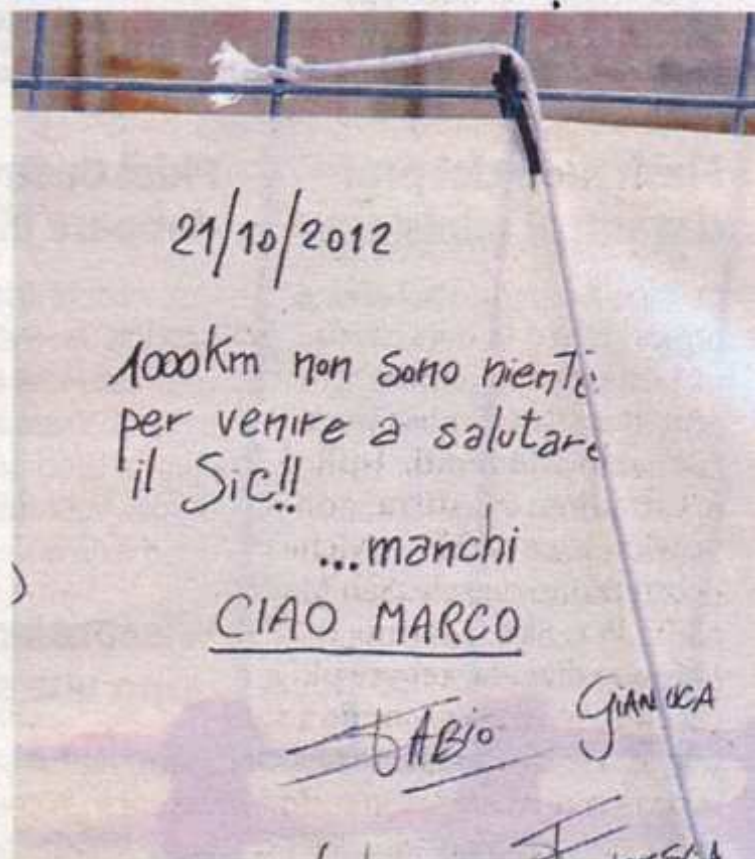 21/10/2012
1000Km non sono niente
per venire a salutare
il Sic!!
...manchi
CIAO MARCO
FABIO GIANLUCA